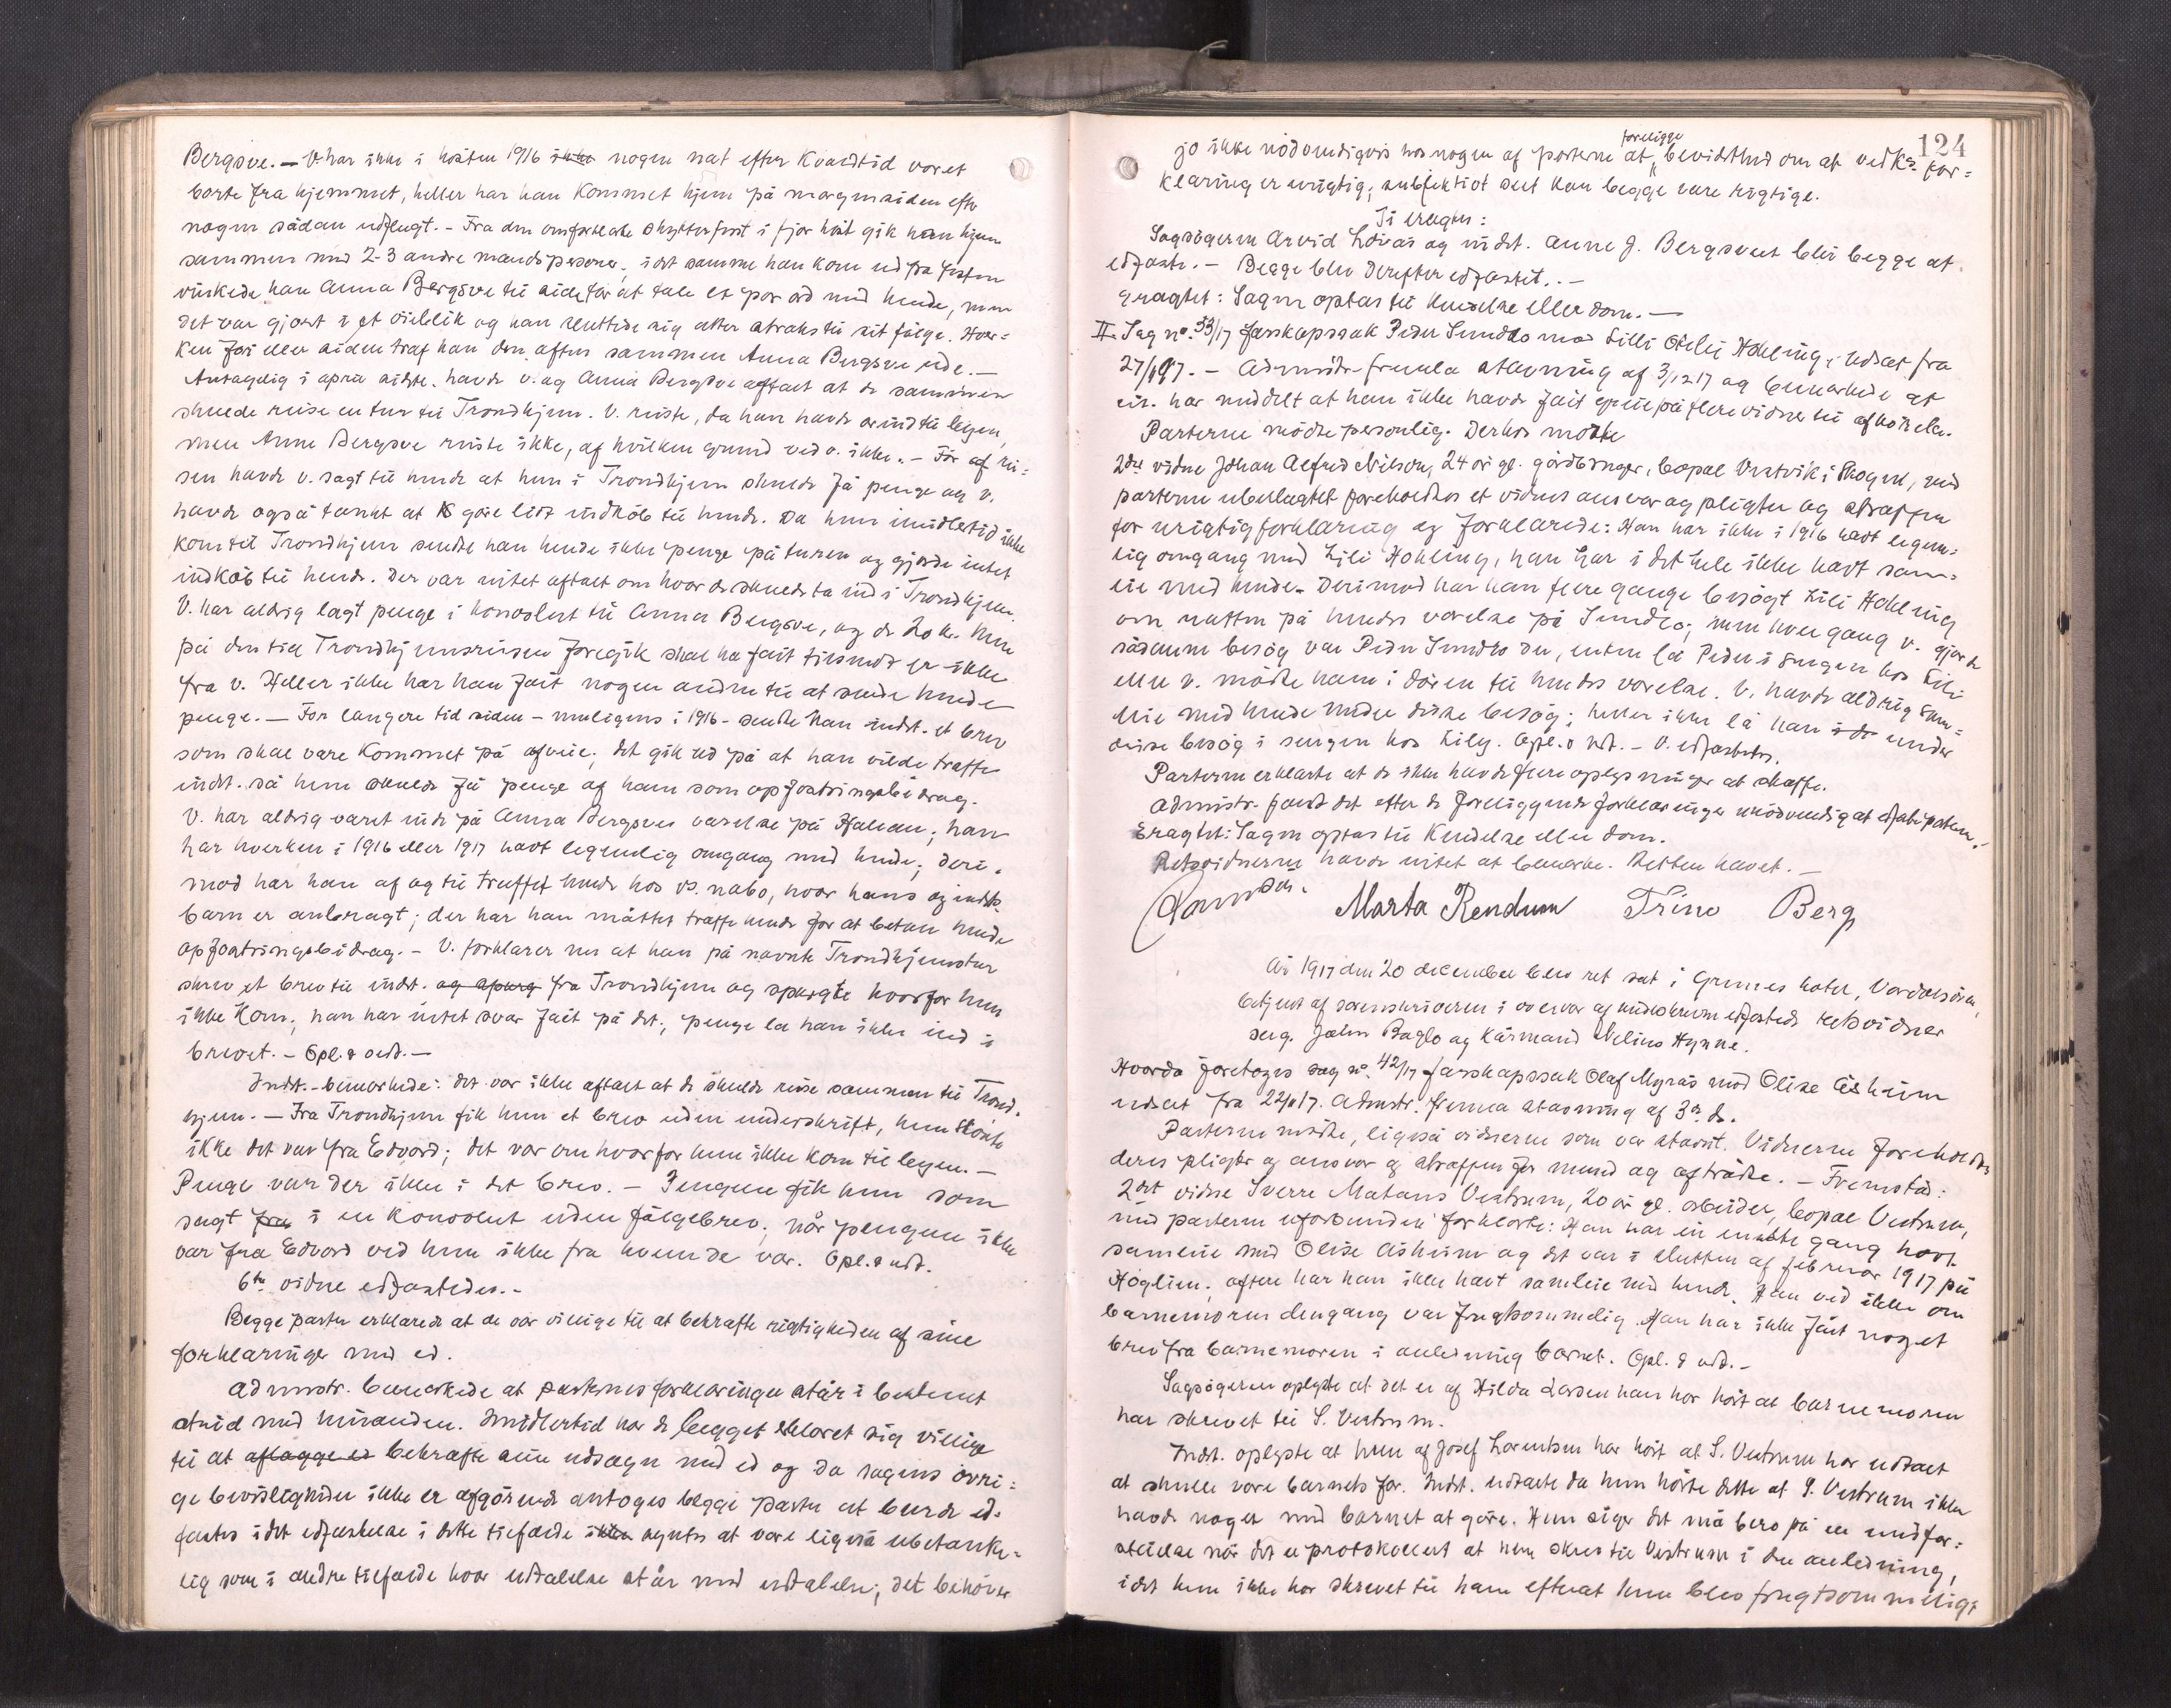 Bergsve. — V. har ikke i hösten 1916 ikke nogen nat efter kveldstid været
borte fra hjemmet, heller har han kommet hjem på morgensiden efter
nogen sådan udflugt. - Fra den omforklarte skytterfest i fjor höst gik han hjem
sammen med 2-3 andre mandspersoner; idet samme han kom ud fra festen
vinkede han Anna Bergsve til side for at tale et par ord med hende, men
det var gjort i et öieblik og han sluttede sig atter straks til sit fölge. Hver-
ken för eller siden traf han den aften sammen Anna Bergsve ude. —
Antagelig i april sidste. havde v. og Anna Bergsve aftalt at de sammen
skulde reise en tur til Trondhjem. V. reiste, da han havde ærind til legen,
men Anna Bergsve reiste ikke, af hvilken grund ved v. ikke. - För af rei-
sen havde v. sagt til hende at hun i Trondhjem skulde få penge og v.
havde også tænkt at göre lidt indköb til hende. Da hun imidlertid ikke
kom til Trondhjem sendte han hende ikke penge på turen og gjorde intet
indköb til hende. Der var intet aftalt om hvor de skulde ta ind i Trondhjem.
V. har aldrig lagt penge i konvolut til Anna Bergsve, og de 20 kr. hun
på den tid Trondhjemsreisen foregik skal ha fåit tilsendt er ikke
fra v. Heller ikke har han fåit nogen anden til at sende hende
penge. — For længere tid siden - muligens i 1916 - sendte han indst. et brev
som skal være kommet på afveie; det gik ud på at han vilde træffe
indst. så hun skulde få penge af ham som opfostringsbidrag.
V. har aldrig været inde på Anna Bergsves værelse på Hallan; han
har hverken i 1916 eller 1917 havt legemlig omgang med hende; deri-
mod har han af og til truffet hende hos vs. nabo, hvor hans og indsts.
barn er anbragt; der har han måttet træffe hende for at betale hende
opfostringsbidrag. - V. forklarer nu at han på nævnte Trondhjemstur
skrev et brev til indst. og spurg fra Trondhjem og spurgte hvorfor hun
ikke kom; han har intet svar fåit på det; penge la han ikke ind i
brevet. - Opl. & vedt. —
Indst. bemærkede: det var ikke aftalt at de skulde reise sammen til Trond-
hjem. — Fra Trondhjem fik hun et brev uden underskrift, hun
ikke det var fra Edvard; det var om hvorfor hun ikke kom til legen. —
Penge var der ikke i det brev. - Pengene fik hun som
sagt fra i en konvolut uden fölgebrev; når pengene ikke
var fra Edvard ved hun ikke fra hvem de var. Opl. & vedt.
6te vidne edfæstedes. -
Begge parter erklærede at de var villige til at bekræfte rigtigheden af sine
forklaringer med ed.
Admstr. bemærkede at parternes forklaringer står i bestemt
strid med hinanden. Imidlertid har de begge erklæret sig villige
til at aflægge ed bekræfte sine udsagn med ed og da sagens övri-
ge bevisligheder ikke er afgörende antoges begge parter at burde ed-
fæstes idet edfæstelse i dette tilfælde ikke syntes at være ligeså ubetænke-
lig som i andre tilfælde hvor udtalelse står mod udtalelse; det behöver
124
jo ikke nödvendigvis hos nogen af parterne at foreligge bevidsthed om at vedks. for-
klaring er urigtig; subjektivt sett kan begge være rigtige.
Ti eragtes:
Sagsögeren Arvid Lövås og indst. Anne J. Bergsveet blir begge at
edfæste. - Begge blev derefter edfæstet. -
Eragtet: Sagen optas til kjendelse eller dom. —
II. Sag no. 53/17 farskapssak Peder Sundlo mod Lilli Otelie Hokling, udsat fra
27/1197. - Admindstr. fremla stævning af 3/12 17 og bemærkede at
har meddelt at han ikke havde fåit greie på flere vidner til afhörelse.
Parterne mödte personlig. Derhos mödte
2det vidne Johan Alfred Nilsen, 24 år gl. gårdbruger, bopæl Vestvik i Skogn, med
parterne ubeslægtet foreholdtes et vidnes ansvar og pligter og straffen
for urigtig forklaring og forklarede: Han har ikke i 1916 havt legem-
lig omgang med Lili Hokling, han har i det hele ikke havt sam-
leie med hende. Derimod har han flere gange besögt Lili Hokling
om natten på hendes værelse på Sundlo; men hver gang v. gjorde
sådanne besög var Peder Sundlo der, enten lå Peder i sengen hos Lili
eller v. mödte ham i dören til hendes værelse. V. havde aldrig sam-
leie med hende under disse besög; heller ikke lå han i de under
disse besög i sengen hos Lily. Opl. & vedt. - V. edfæstedes.
Parterne erklærte at de ikke havde flere oplysninger at skaffe.
Admistr. fandt det efter de foreliggende forklaringer unödvendig at edfæste parterne.
Eragtet: Sagen optas til kjendelse eller dom.
Retsvidnerne havde intet at bemærke. Retten hævet. —
Marta Rendum Trine Berg
År 1917 den 20 december blev ret sat i Grunnes hotel, Værdalsören,
betjent af sorenskriveren i overvær af undeskrevne edfæstede retsvidner
serg. John Baglo og kårmand Nelius Hynne.
Hvorda foretoges sag no. 42/17 farskapssak Olaf Myrås mod Olise Åsheim
udsat fra 22/1117. Admstr. fremla stævning af 3. ds.
Parterne mödte, ligeså vidnerne som var stævnt. Vidnerne foreholdtes
deres pligter og ansvar og straffen for mened og aftrådte. - Fremstod:
2det vidne Sverre Mataus Vestrum, 20 år gl. arbeider, bopæl Vestrum,
med parterne uforbunden forklarte: Han har en enkelte gang havt
samleie med Olise Åsheim og det var i slutten af februar 1917 på
Höglien; oftere har han ikke havt samleie med hende. Han ved ikke om
barnemoren dengang var frugtsommelig. Han har ikke fåit noget
brev fra barnemoren i anledning barnet. Opl. & vedt. -
Sagsögeren oplyste at det er af Hilda Larsen han har hört at barnemoren
har skrevet til S. Vestrum.
Indst. oplyste at hun af Josef Larentsen har hört at S. Vestrum har udtalt
at skulle være barnets far. Indst. udtalte da hun hörte dette at S. Vestrum ikke
havde noget med barnet at göre. Hun siger det må bero på en misfor-
ståelse når det er protokollert at hun skrev til Vestrum i den anledning,
idet hun ikke har skrevet til ham efterat hun blev frugtsommelig.